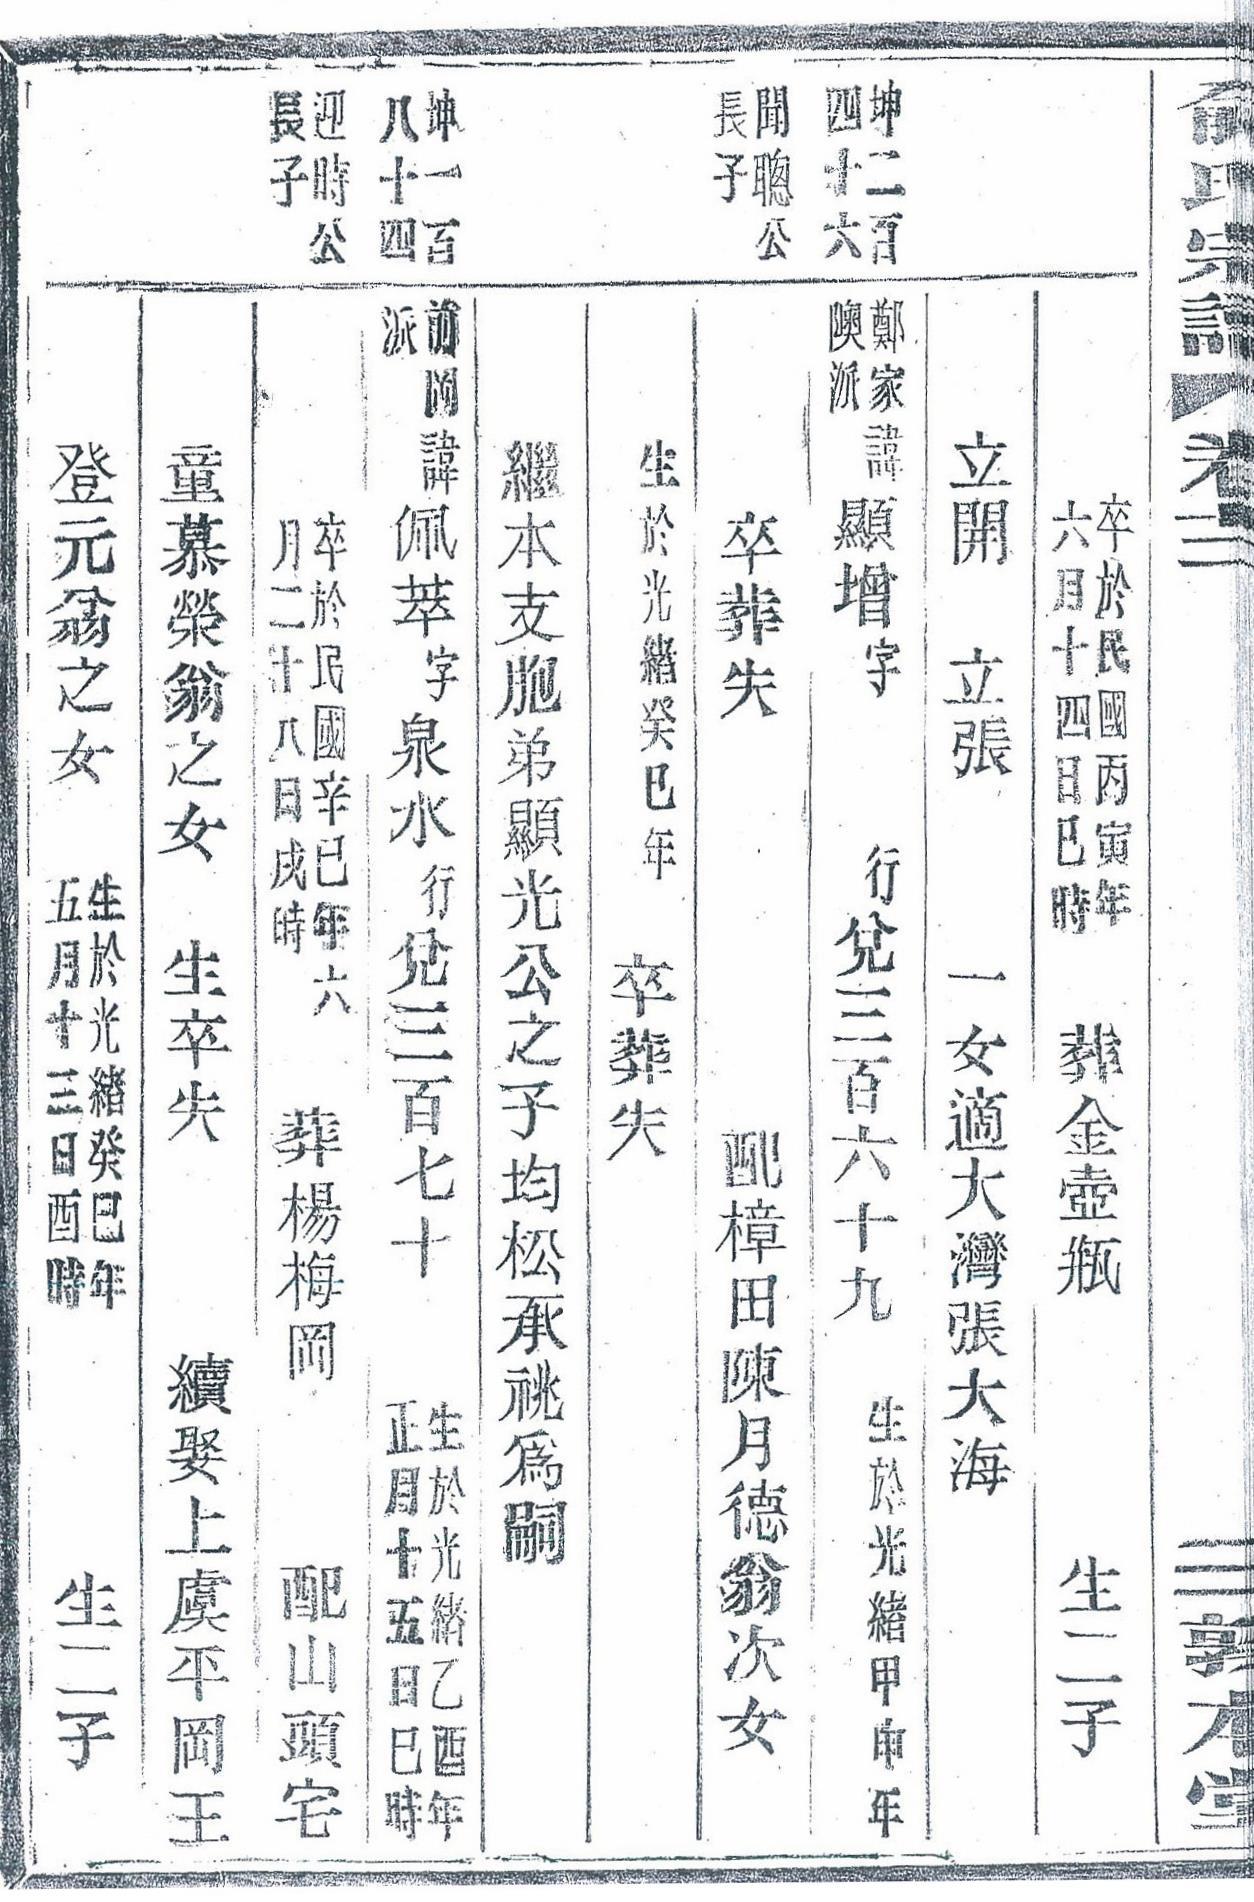 俞氏宗譜 卷二 三 敦本堂
卒於民國丙寅年
六月十四日巳時 葬金壺瓶 生二子
立開 立張 一女適大灣張大海
坤二百
四十六
鄭家
隩派
諱顯增字 行兌三百六十九 生於光緒甲申年
聞聰公
長子
卒葬失 配樟田陳月德翁次女
生於光緒癸巳年 卒葬失
繼本支胞弟顯光公之子均松承祧爲嗣
坤一百
八十四
前岡
派
諱佩萃字泉水行兌三百七十 生於光緒乙酉年
正月十五日巳時
迎時公
長子
卒於民國辛巳年六
月二十八日戌時 葬楊梅岡 配山頭宅
童慕榮翁之女 生卒失 續娶上虞平岡王
登元翁之女 生於光緒癸巳年
五月十三日酉時 生二子